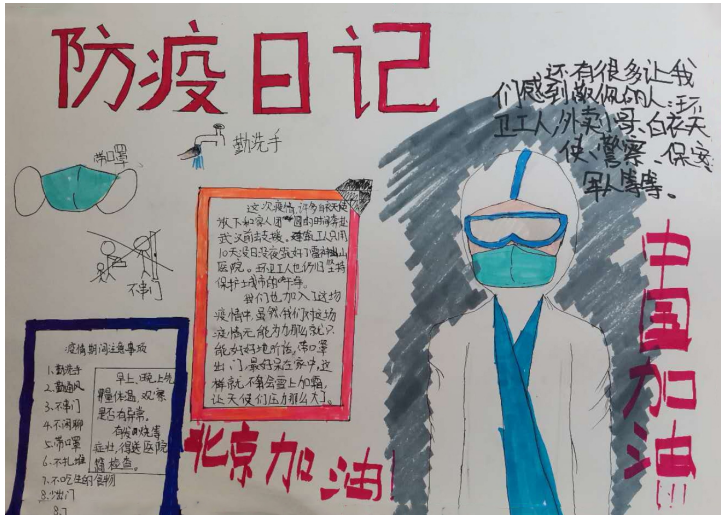 防疫日记
还有很多让我
们感到敬佩的人:环
卫工人,外卖小哥、白衣天
使、警察、保安
军人等等。
带口罩
勤洗手
不串门
这次疫情,许多白衣天使
放下和家人团圆的时间奔赴
武汉前去支援、建筑工人只用
10天没日没夜盖好了雷神山
医院。环卫工人也仍旧坚持
保护土城市的
我们也加入了这场
疫情中,虽然我们对这场
疫情无能为力那么就只
能好好地听话,带口罩
出门,最好呆在家中,这
样就不会雪上加霜,
让天使们压力那么大了。
疫情期间注意事项
1、勤洗手
2、勤通风
3、不串门
4、不闲聊
5、带口罩
6、不扎堆
7、不吃生的食物
8、少出门
早上、晚上先
量体温,观察
是否有异常。
有发烧等
症壮,得送医院
检查。
北京加油!
中国加油!!!